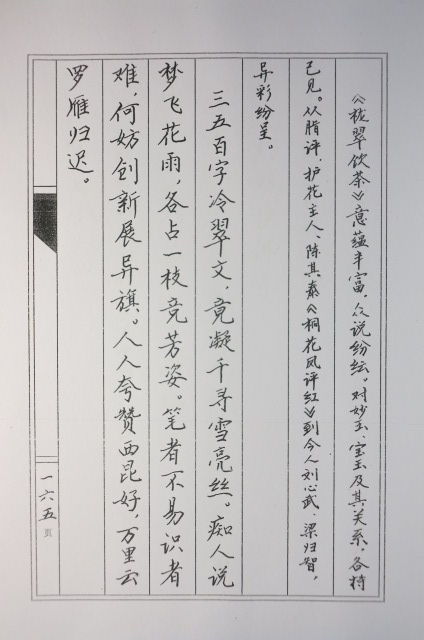 《栊翠饮茶》意蕴丰富，众说纷纭。对妙玉、宝玉及其关系，各持
己见。从脂评、护花主人、陈其泰《桐花凤评红》到今人刘心武、梁归智，
异彩纷呈。
三五百字冷翠文，竟凝千寻雪亮丝。痴人说
梦飞花雨，各占一枝竞芳姿。笔者不易识者
难，何妨创新展异旗。人人夸赞西昆好，万里云
罗雁归迟。
一六五页